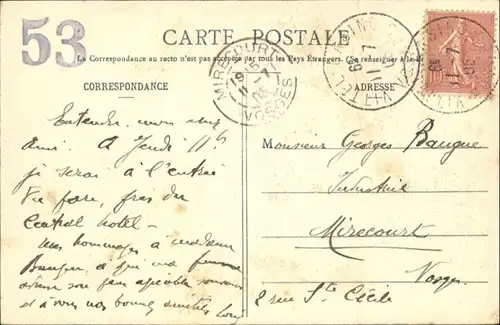 53
CARTE POSTALE
La Correspondance au recto n'est pas acceptée par tous les Pays Étrangers. (Se renseigner à la
CORRESPONDANCE
ADRESSE
MIRECOURT
VOSGES
VITTEL
Entendu, mon cher
ami. A Jeudi 11h
je serai à l'entrée
du parc, près du
Central hotel -
mes hommages à madame
à qui ma femme
son
et à vous nos bonnes amitiés
Monsieur Georges
Industriel
Mirecourt
Vosges
2 rue Ste Cécile